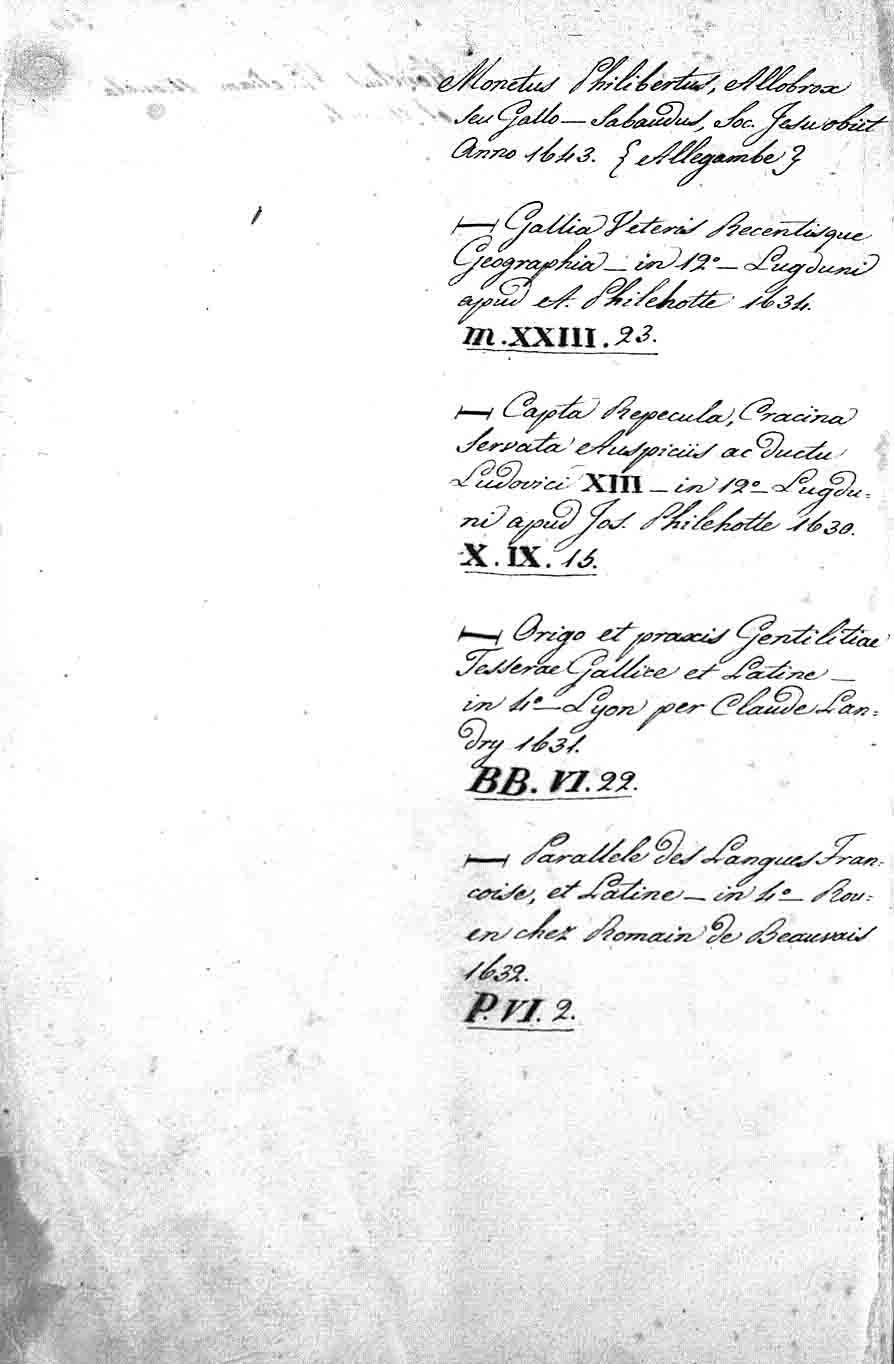 Monetus Philibertus, Allobrox
seu Gallo — Sabaudus, Soc. Jesu obiit
Anno 1643. { Allegambe }
⊢⊣ Gallia Veteris Recentisque
Geographia — in 12º — Lugduni
apud A. Philehotte 1634.
m. XXIII. 23.
⊢⊣ Capta Repecula, Cracina
Servata Auspiciis ac ductu
Ludovici XIII — in 12º — Lugdu=
ni apud Jos. Philehotte 1630.
X. IX. 15.
⊢⊣ Origo et praxis Gentilitiae
Tesserae Gallice et Latine —
in 4º — Lyon per Claude Lan=
dry 1631.
BB. VI. 22.
⊢⊣ Parallele des Langues Fran=
coise, et Latine — in 4º — Rou=
en chez Romain de Beauvais
1632.
P. VI. 2.